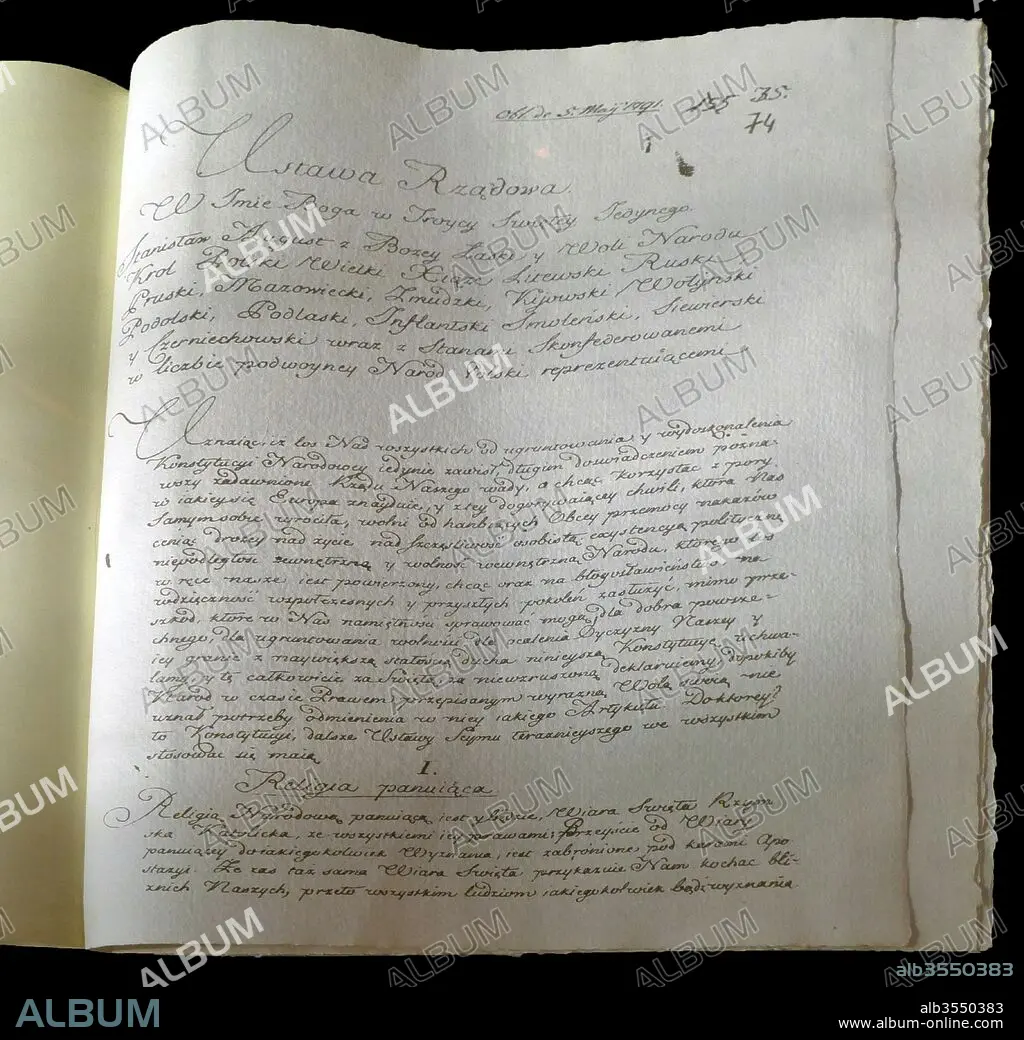 Obl. de 5. Maij 1791. 155 35.
74
Ustawa Rządowa.
W Imie Boga w Troycy Swiętey Jedynego.
Stanisław August z Bożey Łaski y Woli Narodu
Krol Polski Wielki Xiąże Litewski Ruski
Pruski, Mazowiecki, Zmudzki, Kijowski Wołyński
Podolski, Podlaski, Inflantski Smoleński, Siewierski
y Czerniechowski wraz z Stanami Skonfederowanemi
w liczbie podwoyney Naród Polski reprezentuiącemi
Uznaiąc, iż los Nas wszystkich od ugruntowania y wydoskonalenia
Konstytucyi Narodowey iedynie zawisł, długim doświadczeniem pozna-
wszy zadawnione Rządu Naszego wady, a chcąc korzystać z pory
w iakiey się Europa znayduie, y z tey dogorywaiącey chwili, która Nas
samym sobie wróciła, wolni od hańbiących Obcey przemocy nakazów
ceniąc drożey nad życie nad szczęśliwość osobistą exystencyę polityczną
niepodległość zewnętrzną y wolność wewnętrzną Narodu, którego los
w ręce nasze iest powierzony, chcąc oraz na błogosławieństwo, na
wdzięczność współczesnych y przyszłych pokoleń zasłużyć, mimo prze-
szkód, które w Nas namiętność sprawować mogą, dla dobra powsze-
chnego, dla ugruntowania wolności dla ocalenia Oyczyzny Naszey y
iey granic z naywiększą stałością ducha ninieyszą Konstytucyę uchwa-
lamy, y tę całkowicie za świętą za niewzruszoną deklaruiemy, dopókiby
Naród w czasie Prawem przepisanym wyraźną Wolą swoią nie
uznał potrzeby odmienienia w niey iakiego Artykułu. Do którey
to Konstytucyi, dalsze Ustawy Seymu teraznieyszego we wszystkim
stosować się maią.
I.
Religia panuiąca
Religią Narodową panuiącą iest y będzie, Wiara Swięta Rzym
ska Katolicka, ze wszystkiemi iey prawami; Przeyście od Wiary
panuiącey do iakiegokolwiek Wyznania, iest zabronione pod karami Apo
stazyi. Że zaś taż sama Wiara Swięta przykazuie Nam kochać bli-
znich Naszych, przeto wszystkim ludziom iakiegokolwiek bądź wyznania
ALBUM
alb3550383
ALBUM
alb3550383
www.album-online.com